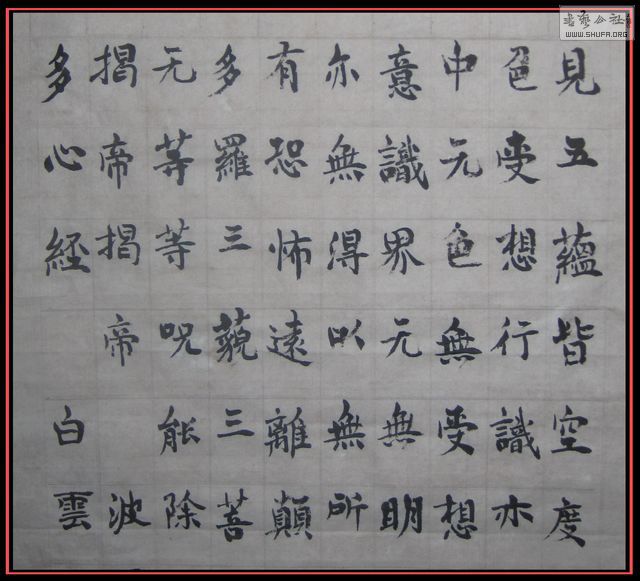 見五蘊皆空度
色受想行識亦
中元色無受想
意識界无無明
亦無得以無所
有恐怖遠離顛
多羅三藐三菩
无等等呪能除
揭帝揭帝 波
多心経 白雲
書藝公社
WWW.SHUFA.ORG